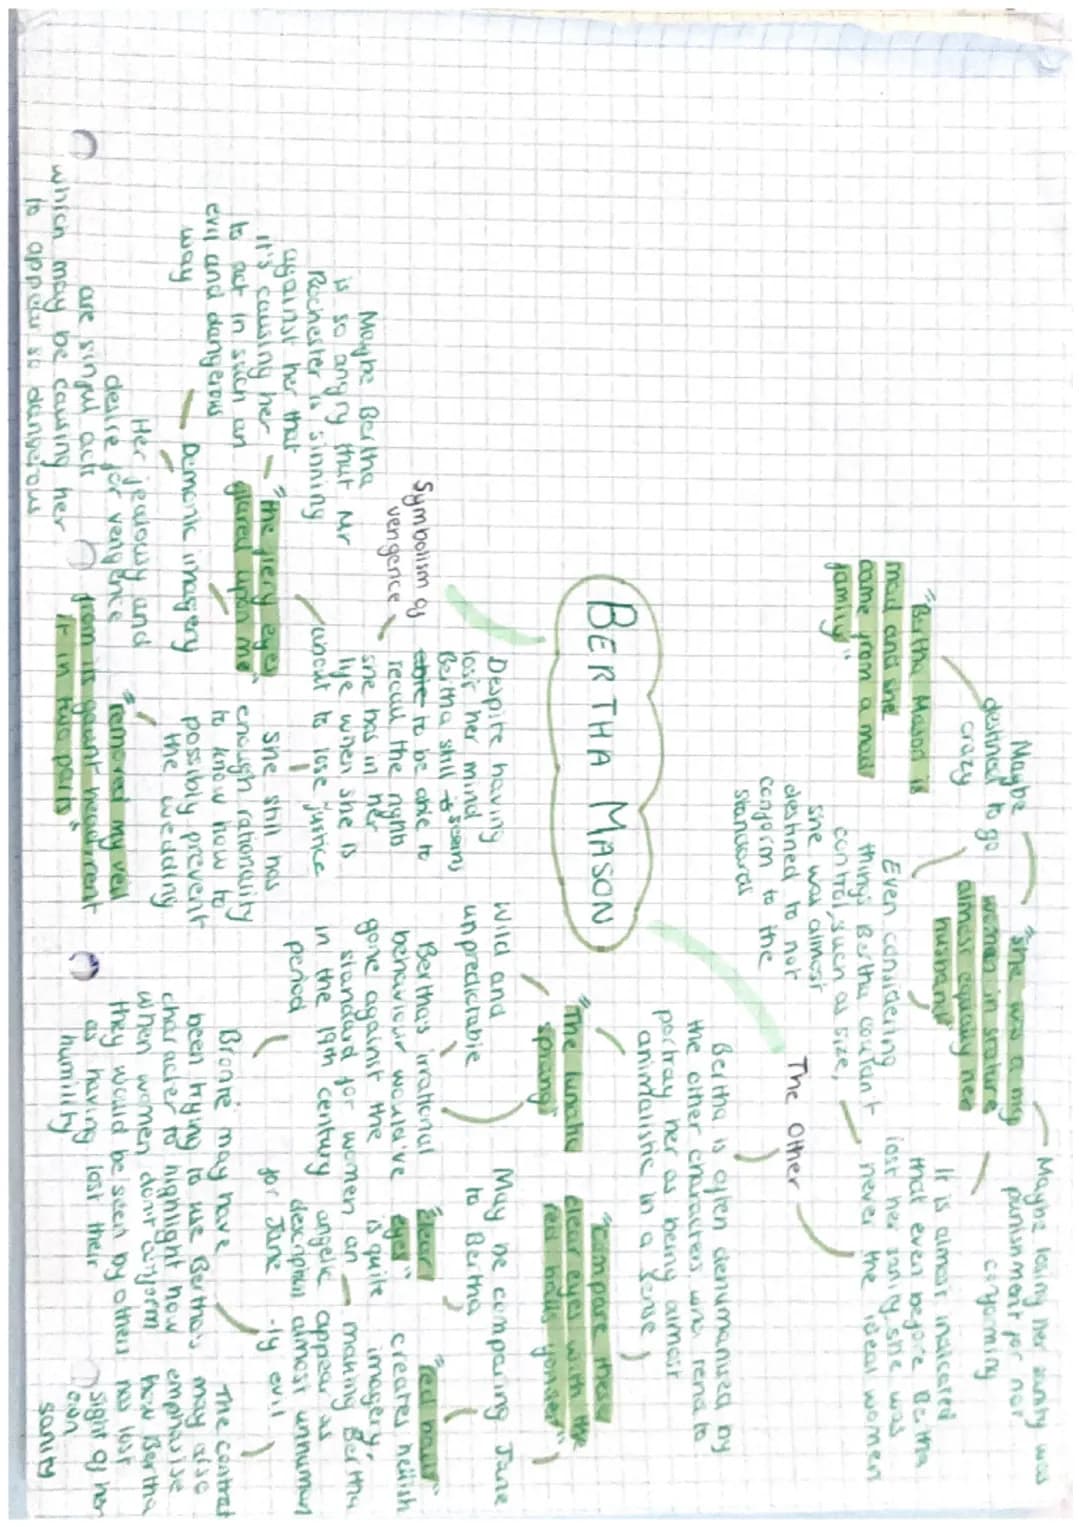 BERTHA MASON
The Other
Bertha is often dehumanised by
the other characters who tend to
portray her as being almost
animalistic in a sense
"Bertha Mason is
mad and she
came from a mad
family"
Maybe
destined to go
crazy
"she was a big
woman in stature
almost equaling her
husband"
Even considering
things Bertha couldn't
control, such as size,
she was almost
destined to not
conform to the
standards
Maybe losing her sanity was
punishment for not
conformity
It is almost indicated
that even before Bertha
lost her sanity, she was
never the ideal women
"the lunatic
sprang"
Wild and
unpredictable
Berthas irrational
behaviour would've
gone against the
standard for women
in the 19th century
period
Brontë may have
been trying to use Berthas
character to highlight how
when women don't conform
they would be seen by others
as having lost their
humility
"compare these
clear eyes with the
red balls yonder"
May be comparing Jane
to Bertha
"clear
eyes"
is quite
an
angelic
description
for Jane
"red balls"
creates hellish
imagery,
making Bertha
appear as
almost unhuman
-ly evil
The contrast
may also
emphasise
how Bertha
has lost
sight of her
own
sanity
Symbolism of
vengence
Despite having
lost her mind
Bertha still seems
to be able to
recall the rights
she has in her
life when she is
about to lose justice
"the fiery eyes
glared upon me"
Maybe Bertha
is so angry that Mr
Rochester is sinning
against her that
it's causing her
to act in such an
evil and dangerous
way
Demonic imagery
Her jealousy and
desire for vengence
are sinful acts
which may be causing her
to appear so dangerous
She still has
enough rationality
to know how to
possibly prevent
the wedding
"removed my veil
from its gaunt head, rent
it in two parts"